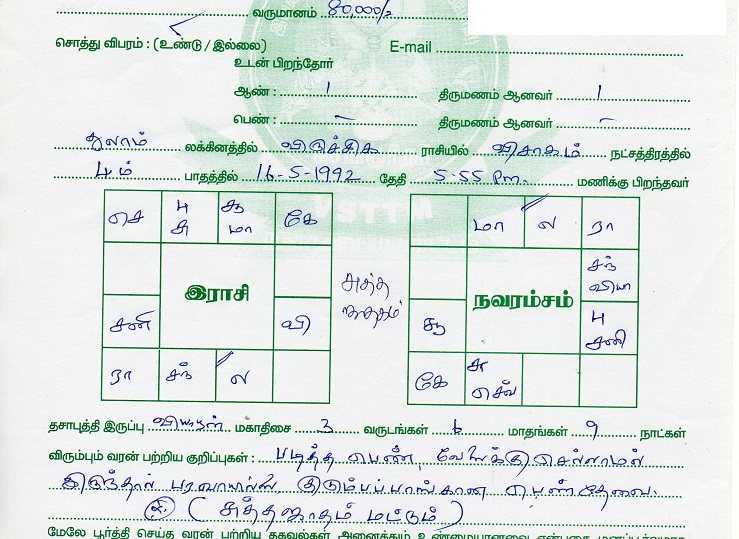 வருமானம் 80,000/-
சொத்து விபரம் : (உண்டு / இல்லை) E-mail
உடன் பிறந்தோர்
ஆண் : 1 திருமணம் ஆனவர் 1
பெண் : – திருமணம் ஆனவர் –
துலாம் லக்கினத்தில் விருச்சிக ராசியில் விசாகம் நட்சத்திரத்தில்
4ம் பாதத்தில் 16-5-1992 தேதி 5-55 P.m. மணிக்கு பிறந்தவர்
செ பு சு சூ மா கே
சனி இராசி வி
ரா சந் ல
சுத்த ஜாதகம்
மா ல ரா
சந் வியா
சூ நவரம்சம் பு சனி
கே சு செவ்
தசாபுத்தி இருப்பு வியாழன் மகாதிசை 3 வருடங்கள் 6 மாதங்கள் 9 நாட்கள்
விரும்பும் வரன் பற்றிய குறிப்புகள் : படித்த பெண், வேலைக்கு செல்லாமல்
இருந்தால் பரவாயில்லை குடும்பப்பாங்கான பெண் தேவை.
(சுத்தஜாதகம் மட்டும்)
மேலே பூர்த்தி செய்த வரன் பற்றிய தகவல்கள் அனைத்தும் உண்மையானவை என்பதை மனப்பூர்வமாக